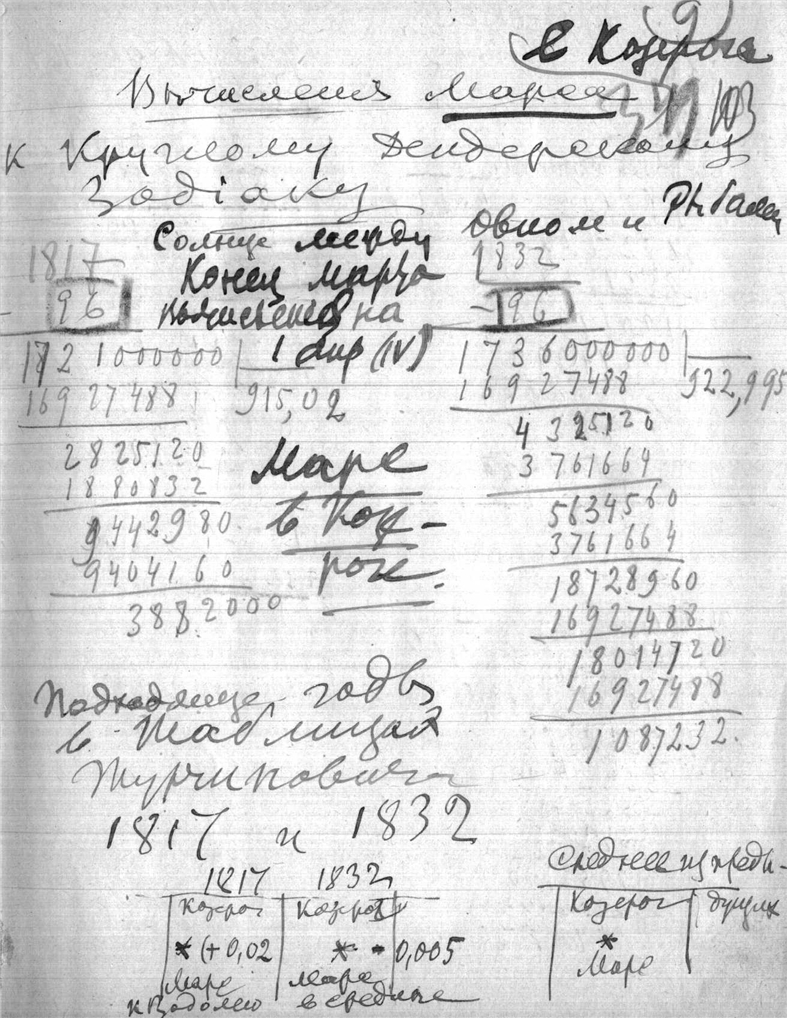 9
в Козероге
Вычисления Марса
103
к Круглому Дендерскому
Зодіаку
Солнце между Овном и Рыбами
1817 Конец марта 1832
- 96 вычислено на - 96
1721000000 1 апр (IV) 1736000000
16927488 915,02 16927488 922,995
2825120 4325120
1880832 Марс 3761664
9442980 в Коз- 5634560
9404160 роге. 3761664
3882000 18728960
16927488
18014720
16927488
1087232.
Подходящие годы
в Таблицах
1817 и 1832
1817 1832 Среднее из преды-
Козерог Козерог Козерог дущих
* (+0,02 * - 0,005 *
Марс Марс Марс
к Водолею в середине